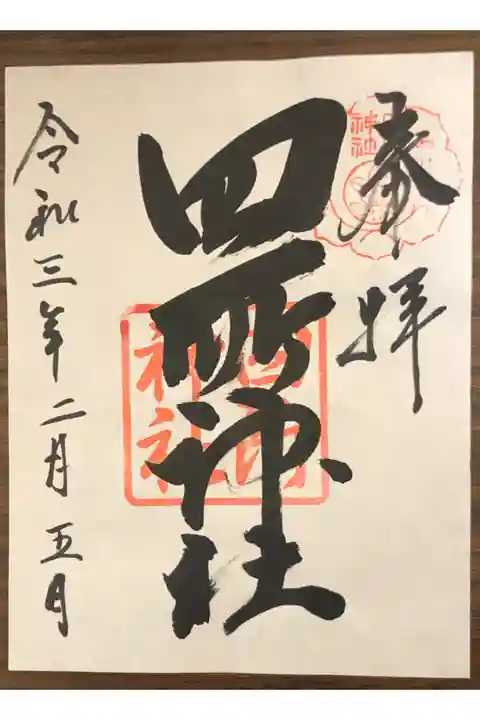 奉拝
四所神社
四所
神社
令和三年二月五日